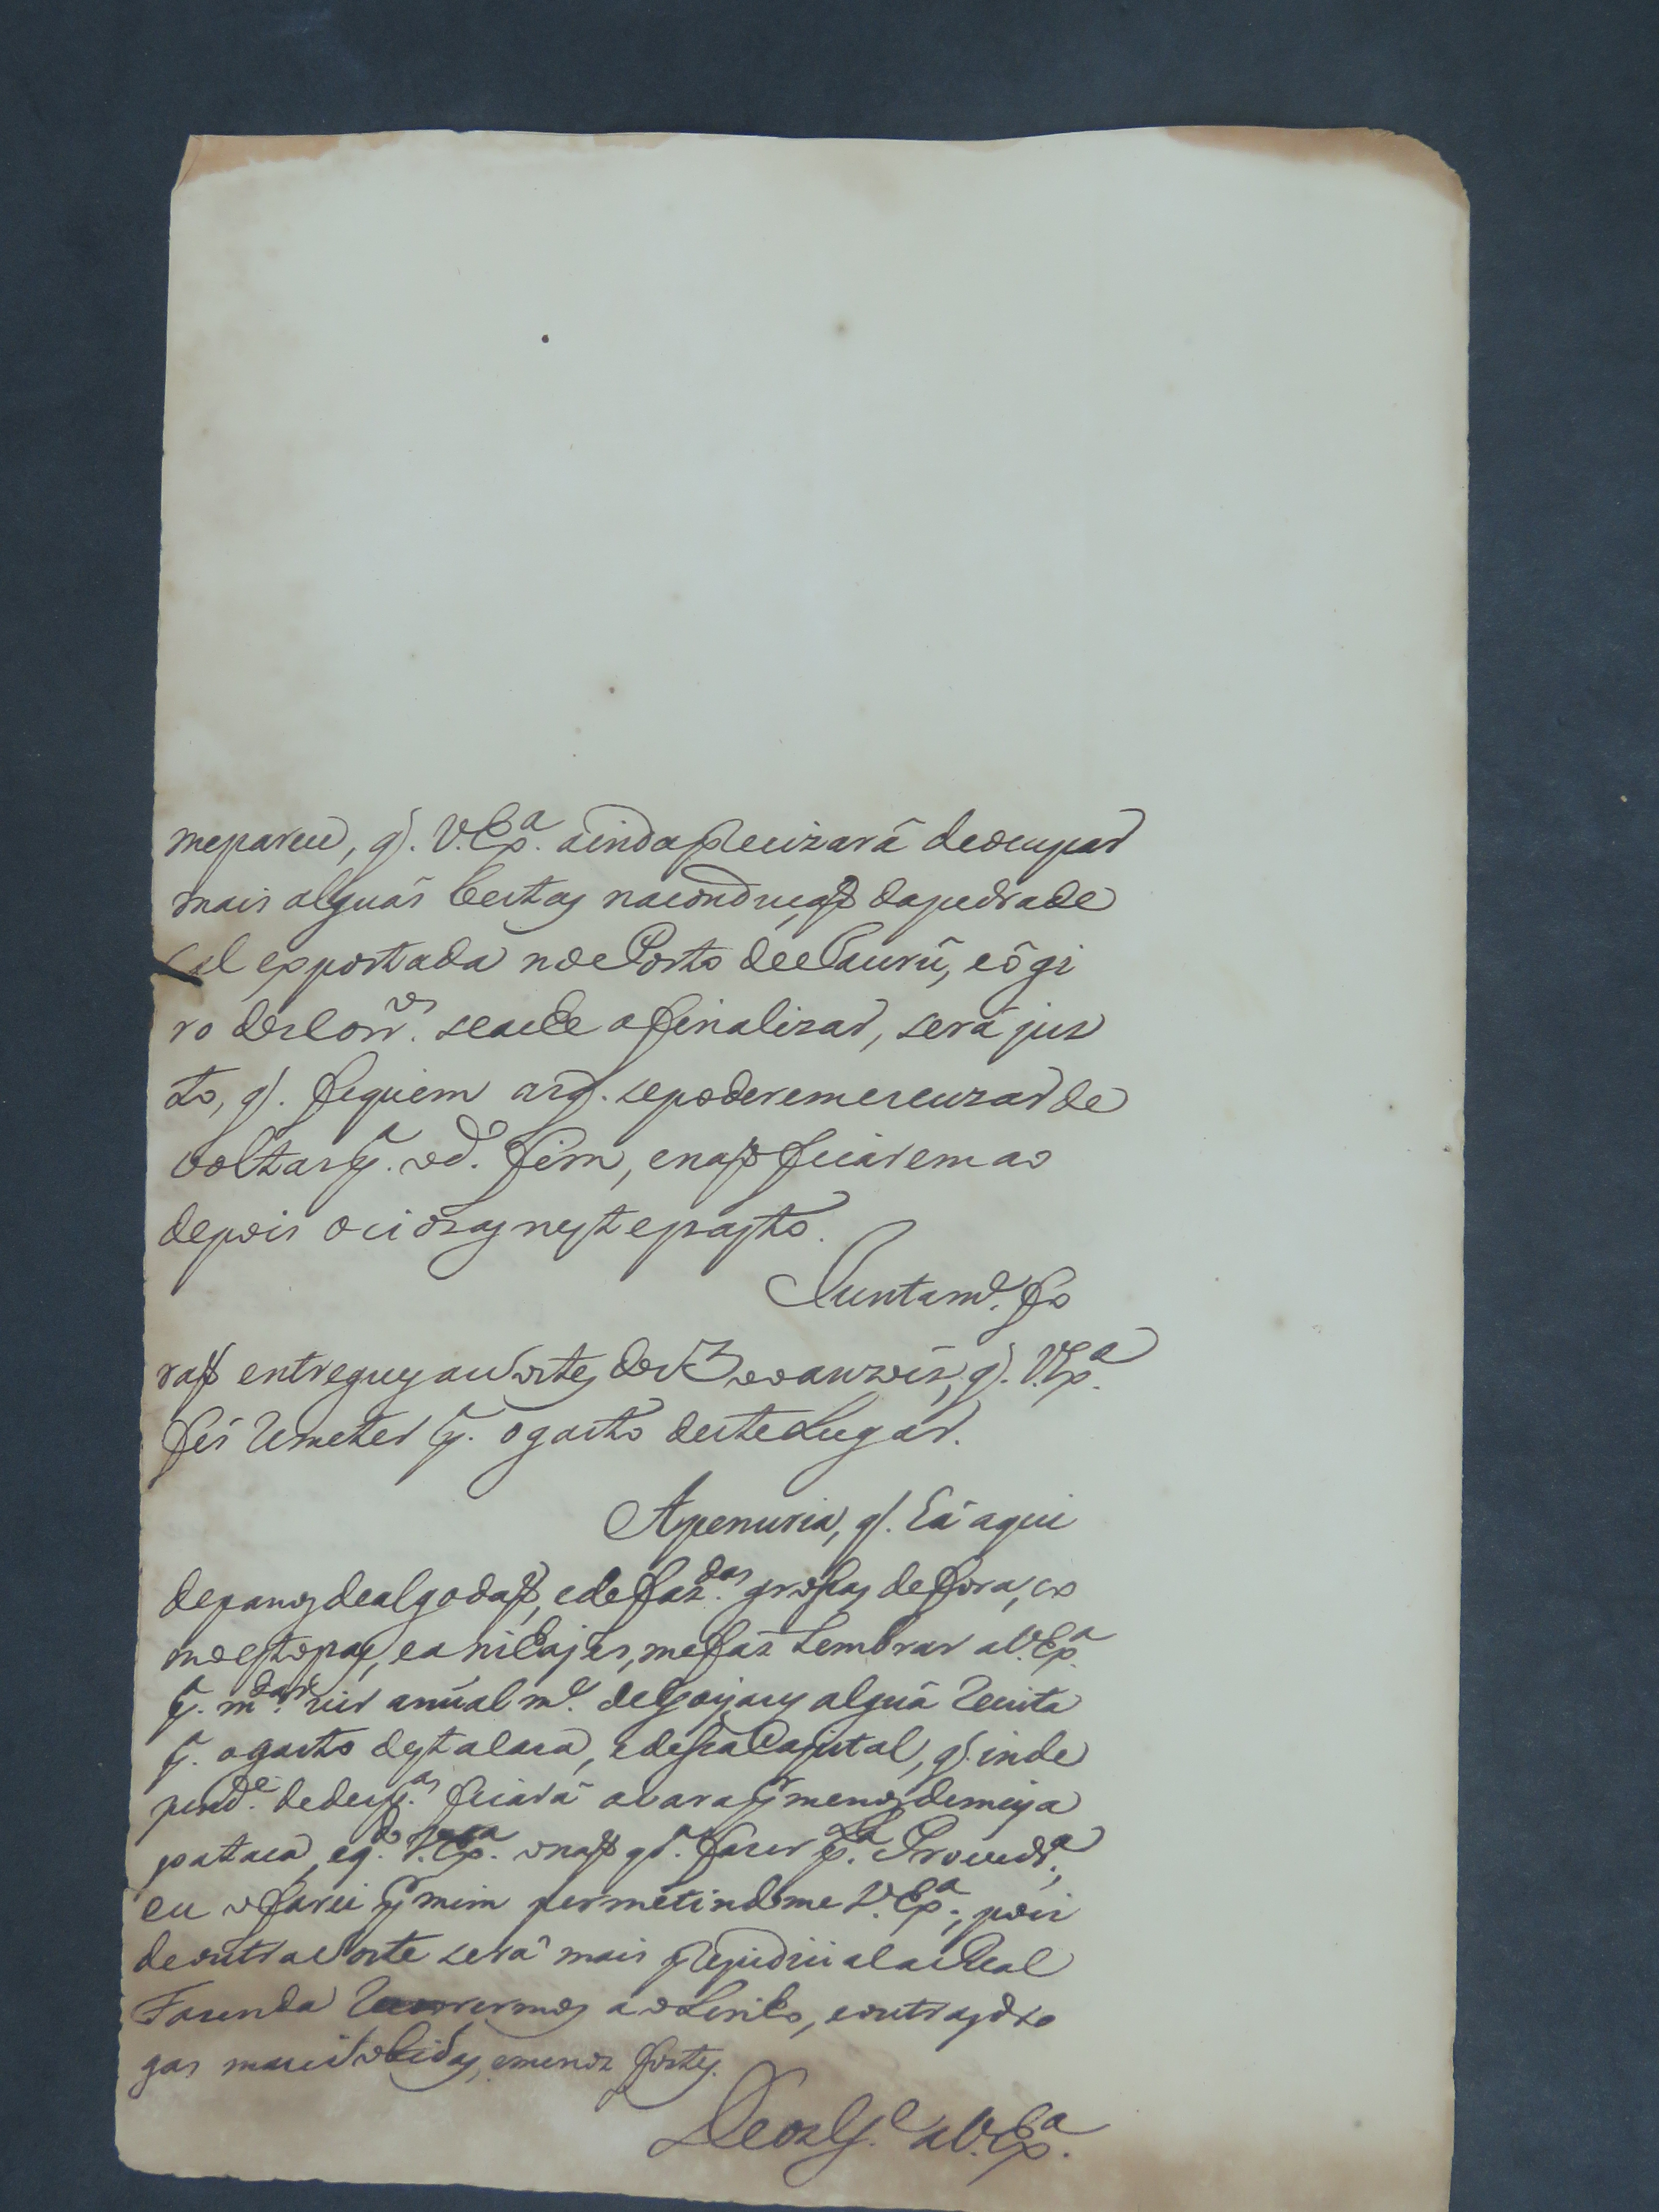 me pareceo, q̃. V. Ex.ª ainda precizará de ocupar
mais alguãs bestas na condução da pedra de
cal exportada no Porto de Caurú, e o gi
ro dos Corr.os se acha a finalizar, será jus
to, q̃. fiquem as q̃. se poderem escuzar de
voltar p.ª o d.º fim, e naõ ficarem ao
depois ociozas neste pasto.
Juntam.e fo
raõ entregues as sortes dos q̃. V. Ex.ª
fes remeter p.ª o gasto deste Lugar.
A penuria, q̃. há aqui
de panos de algodaõ, e de faz.das groças de fora, co
mo estopas, e anihajes, me fáz Lembrar a V. Ex.ª
p.ª m.dar vir anualm.e de Goyazes alguã
p.ª o gasto desta casa, e dessa Capital, q̃. inde
pend.e de desp.as ficará a vara por menos de meya
pataca, e q.do V. Ex.ª o naõ q.r fazer p.la Proved.ª,
eu o farei por mim permetindome V. Ex.ª, pois
de outra sorte será mais prejudicial a Real
Fazenda recorrermos ao Linho, e outras dro
gas mais sobidas, e menos fortes.
Deos G.e a V. Ex.ª